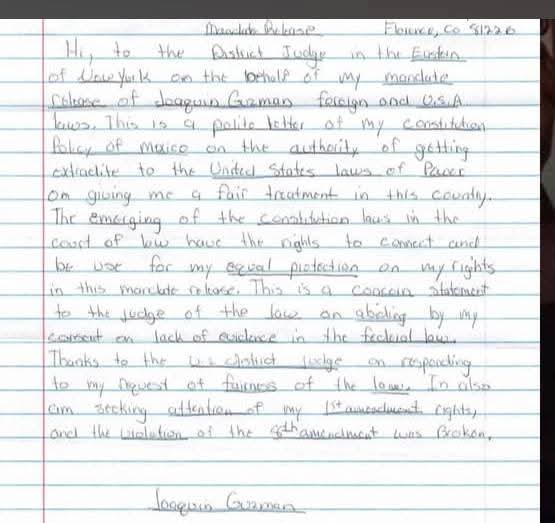 Mandate Release Florence, Co 81226
Hi, to the District Judge in the Eastern
of New York on the behalf of my mandate
release of Joaquin Guzman foreign and U.S.A
laws. This is a polite letter of my constitution
Policy of mexico on the authority of getting
extradite to the United States laws of Power
on giving me a fair treatment in this country.
The emerging of the constitution laws in the
court of law have the rights to connect and
be use for my equal protection on my rights
in this mandate release. This is a concern statement
to the judge of the law on abiding by my
consent on lack of evidence in the federal law.
Thanks to the U.S district judge on responding
to my request of fairness of the law. In also
am seeking attention of my 1st amendment rights,
and the violation of the amendment was Broken.
Joaquin Guzman